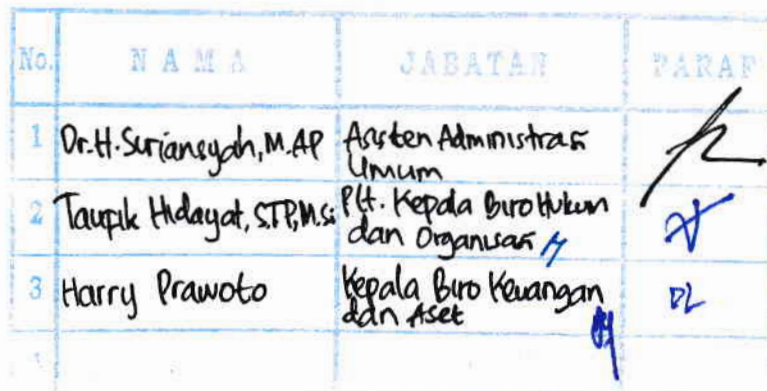 No. NAMA JABATAN PARAF
1 Dr.H.Suriansyah, M.AP Asisten Administrasi
Umum
2 Taupik Hidayat, S.TP, M.Si Plt. Kepala Biro Hukum
dan Organisasi
3 Harry Prawoto Kepala Biro Keuangan
dan Aset